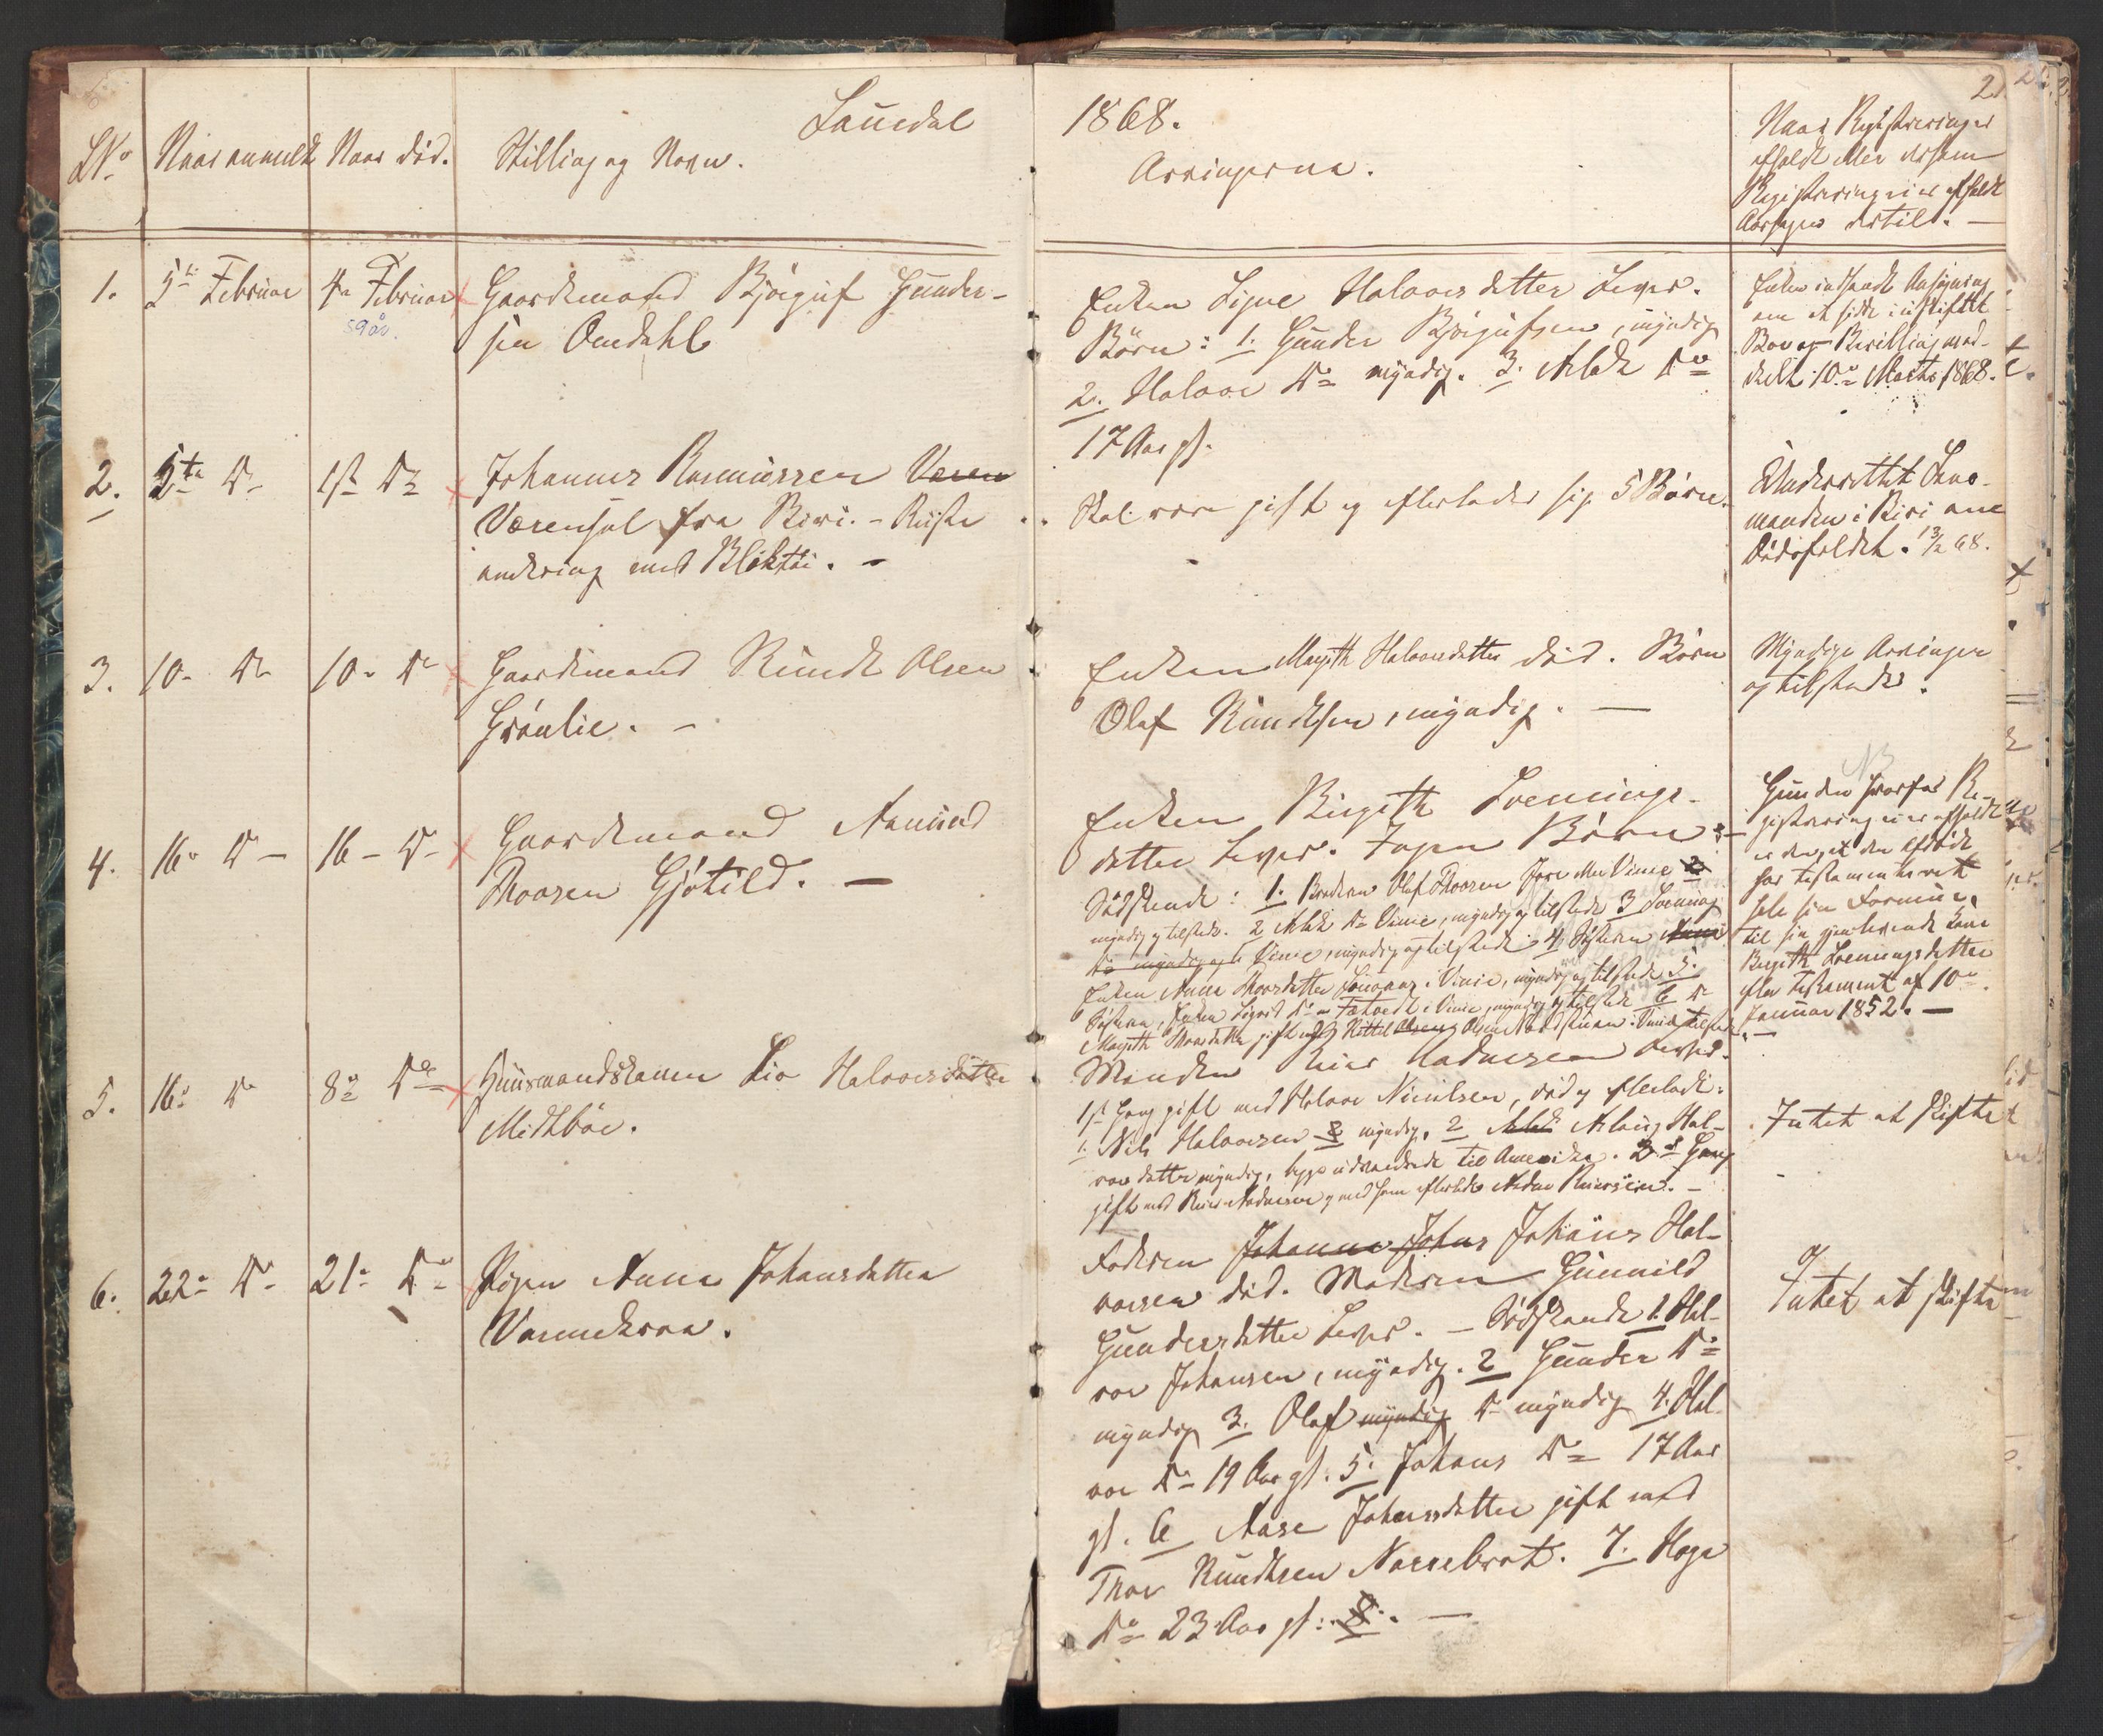 Laurdal
1868.
2.
LNo
Naar anmeldt
Naar død.
Stilling og Navn.
Arvingerne.
Naar Registreringen
afholdt eller dersom
Registrering ei er afholdt
Aarsagen dertil. —
1.
5te Februar
4de Februar
59 år.
Gaardmand Bjørguf Gunder-
sen Omdahl
Enken Signe Halvorsdatter Lever.
Børn: 1. Gunder Bjørgufsen, myndig
2. Halvor Do myndig. 3. Aslak Do
17 Aar gl.
Enken indsendt Ansøgning
om at sidde i uskiftet
Bo og Bevilling med-
delt 10de Marts 1868.
2.
5te Do
1st Do
Johannes Rasmussen Væren
Værensol fra Biri. - Reiste
omkring med Bliktøi. —
Skal være gift og efterlader sig 5 Børn.
Underrettet Lens-
manden i Biri om
Dødsfaldet. 13/2 68.
3.
10. Do
10. Do
Gaardmand Knudt Olsen
Grønlie. —
Enken Margith Halvorsdatter død. Børn
Olaf Knudtsen, myndig. —
Myndige Arvinger
og tilstede.
4.
16. Do —
16 - Do
Gaardmand Aamund
Thorsen Gjøtild. —
NB
Enken Birgith Lvenings-
datter Lever. Ingen Børn:—
Sødskende: 1. Broderen Olaf Thorsen Vinie 2
myndig og tilstede. 2 Aslak Do Vinie, myndig og tilstede 3 Lvening
Do myndig og i Vinie, myndig og tilstede 4 Søsteren Anne
Enken Anne Thorsdatter i Vinie, myndig og tilstede 5.
Søsteren, Enken Sigrid Do i Vinie, myndig og tilstede 6 Do
Margith Thorsdatter gift med Kittel Olsen Olsen i Vinie tilstede.
Grunden hvorfor Re-
gistrering ei er afholdt
er den, at den afdøde
har testamenteret
hele sin Formue
til sin gjenlevende Kone
Birgith Lveningsdatter
efter Testament af 10de
Januar 1852. —
5.
16. Do
8de Do
Huusmandskonen Liv Halvorsdatter
Midtbøe.
Manden Reier Aadnesen Lever.
1st Gang gift med Halvor Nirilsen, død og efterladt:
1. Nils Halvorsen 2 myndig. 2 Aslak Aslaug Hal-
vorsdatter myndig, begge udvandrede til Amerika. 2den Gang
gift med Reier Aadnesen og med ham efterladt Aadne Reiersen. —
Intet at skifte
6.
22. Do
21. Do
Pigen Anne Johansdatter
Vaamekraa.
Faderen Johannes Johns Johans Hal-
vorsen død. Moderen Gunnild
Gundersdatter Lever. — Sødskende 1. Hal-
vor Johansen, myndig. 2 Gunder Do
myndig 3. Olaf myndig Do myndig 4. Hal-
vor Do 19 Aar gl. 5. Johans Do 17 Aar
gl. 6 Aase Johansdatter gift med
Thor Knudtsen Næsebrat. 7. Hage
Do 23 Aar gl: 8. —
Intet at skifte